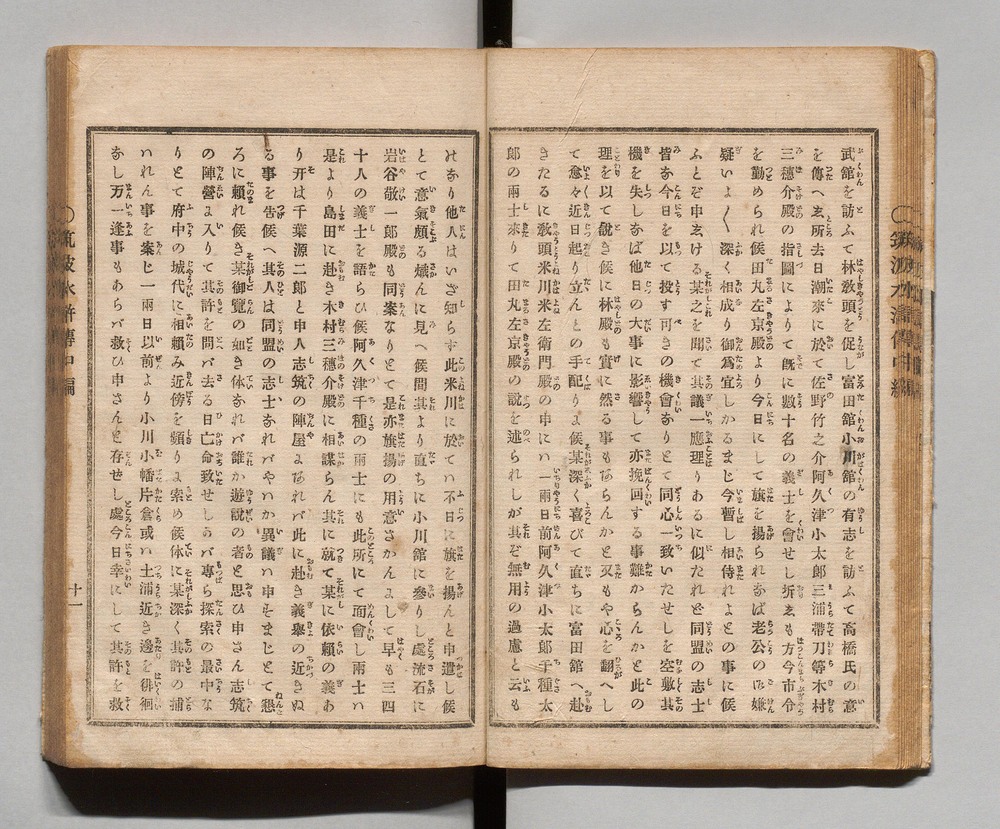 武館を訪ふて林教頭を促し富田館小川館の有志を訪ふて高橋氏の意
を傳へゑ所去日潮來に於て佐野竹之介阿久津小太郎三浦帶刀等木村
三穗介殿の指圖によりて既に數十名の義士を會せし折ゑも方今市令
を勤められ候田丸左京殿より今日にして旗を揚られなば老公の御嫌
疑いよ〱深く相成り御爲宜しかるまじ今暫し相待れよとの事に候
ふとぞ申ゑける某之を聞て其議一應理りあるに似たれど同盟の志士
皆な今日を以て投す可きの機會なりとて同心一致いたせしを空敷其
機を失しなば他日の大事に影響して亦挽回する事難からんかと此の
理を以て說き候に林殿も實に然る事もあらんかと又もや心を翻へし
て愈々近日起り立んとの手配りよ候某深く喜びて直ちに富田館へ赴
きたるに敎頭米川米左衛門殿の申にハ一兩日前阿久津小太郎千種太
郎の兩士來りて田丸左京殿の說を述られしが其ぞ無用の過慮と云も
のなり他人はいざ知らす此米川に於てハ不日に旗を揚んと申遣し候
とて意氣頗る熾んに見へ候間其より直ちに小川館に參りし處流石に
岩谷敬一郎殿も同案なりとて是亦旗揚の用意さかんよして早も三四
十人の義士を語らひ候阿久津千種の兩士にも此所にて面會し兩士ハ
是より島田に赴き木村三穗介殿に相謀らんも其に就て某に依賴の義あ
り开は千葉源二郎と申人志筑の陣屋よあれバ此に赴き義擧の近きぬ
る事を告候へ其人は同盟の志士なれバやいか異議ハ申そまじとて懇
ろに賴れ候き某御覽の如き体なれバ誰か遊說の者と思ひ申さん志筑
の陣營よ入りて其許を問バ去る日亡命致せしのバ專ら探索の最中な
りとて府中の城代に相賴み近傍を頻りよ索め候体に某深く其許の捕
ハれん事を案じ一兩日以前より小川小幡片倉或ハ土浦近き邊を徘徊
なし万一逢事もあらバ救ひ申さんと存せし處今日幸にして其許を救
〇筑波水滸傳中編
十一